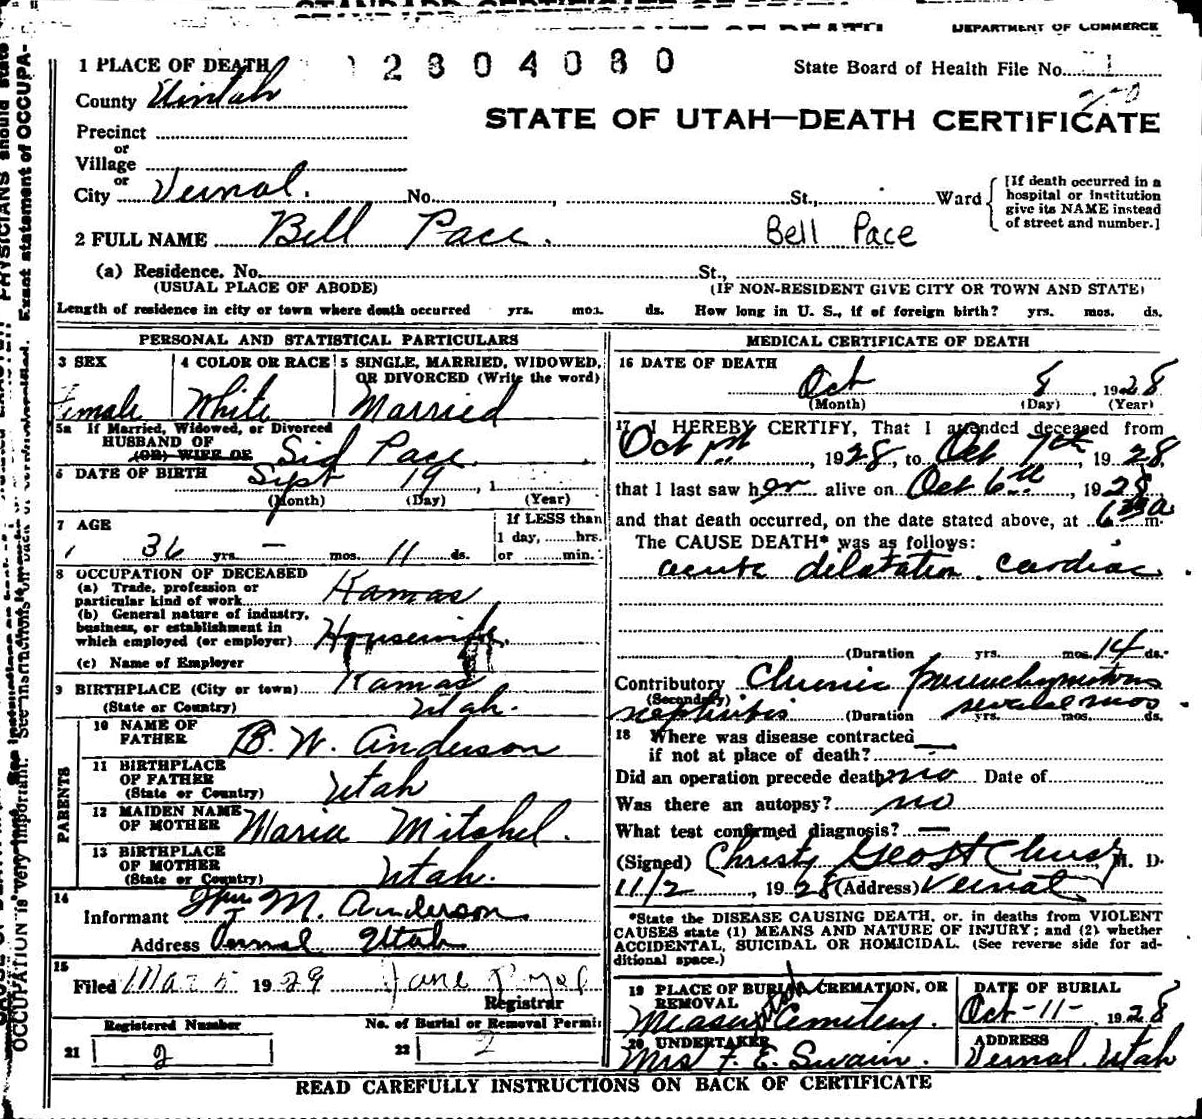 DEPARTMENT OF COMMERCE
1 PLACE OF DEATH
2804080
State Board of Health File No. 1
County Uintah
250
STATE OF UTAH—DEATH CERTIFICATE
Precinct
or
Village
or
City Vernal. No. , St., Ward
[If death occurred in a hospital or institution give its NAME instead of street and number.]
2 FULL NAME Bell Pace. Bell Pace
(a) Residence. No. St.,
(USUAL PLACE OF ABODE) (IF NON-RESIDENT GIVE CITY OR TOWN AND STATE)
Length of residence in city or town where death occurred yrs. mos. ds. How long in U. S., if of foreign birth? yrs. mos. ds.
PERSONAL AND STATISTICAL PARTICULARS
3 SEX 4 COLOR OR RACE 5 SINGLE, MARRIED, WIDOWED, OR DIVORCED (Write the word)
Female White Married
5a If Married, Widowed, or Divorced
HUSBAND OF
(OR) WIFE OF Sid Pace
6 DATE OF BIRTH Sept 19, 1
(Month) (Day) (Year)
7 AGE If LESS than
1 day, hrs.
36 yrs. — mos. 11 ds. or min.
8 OCCUPATION OF DECEASED
(a) Trade, profession or
particular kind of work Kamas
(b) General nature of industry,
business, or establishment in
which employed (or employer) Housewife.
(c) Name of Employer
9 BIRTHPLACE (City or town) Kamas
(State or Country) Utah.
PARENTS
10 NAME OF
FATHER B. W. Anderson
11 BIRTHPLACE
OF FATHER
(State or Country) Utah
12 MAIDEN NAME
OF MOTHER Maria Mitchel.
13 BIRTHPLACE
OF MOTHER
(State or Country) Utah.
14
Informant Wm M. Anderson
Address Vernal Utah
15
Filed Mar 5 1929 Jane
Registrar
Registered Number No. of Burial or Removal Permit
21 2 22 2
MEDICAL CERTIFICATE OF DEATH
16 DATE OF DEATH
Oct 8 1928
(Month) (Day) (Year)
17 I HEREBY CERTIFY, That I attended deceased from
Oct 1st, 1928, to Oct 7th, 1928
that I last saw her alive on Oct 6th, 1928
and that death occurred, on the date stated above, at 6 a m.
The CAUSE DEATH* was as follows:
acute dilatation cardiac.
(Duration yrs. mos. 14 ds.
Contributory Chronic parenchymatous
(Secondary)
nephritis (Duration several mos yrs. mos. ds.
18 Where was disease contracted
if not at place of death? —
Did an operation precede death no Date of
Was there an autopsy? no
What test confirmed diagnosis? —
(Signed) M. D.
11/2, 1928 (Address) Vernal
*State the DISEASE CAUSING DEATH, or, in deaths from VIOLENT
CAUSES state (1) MEANS AND NATURE OF INJURY; and (2) whether
ACCIDENTAL, SUICIDAL OR HOMICIDAL. (See reverse side for ad-
ditional space.)
19 PLACE OF BURIAL, CREMATION, OR DATE OF BURIAL
REMOVAL Utah
Measer Cemetery. Oct-11- 1928
20 UNDERTAKER ADDRESS
Mrs F. E. Swain. Vernal, Utah
READ CAREFULLY INSTRUCTIONS ON BACK OF CERTIFICATE